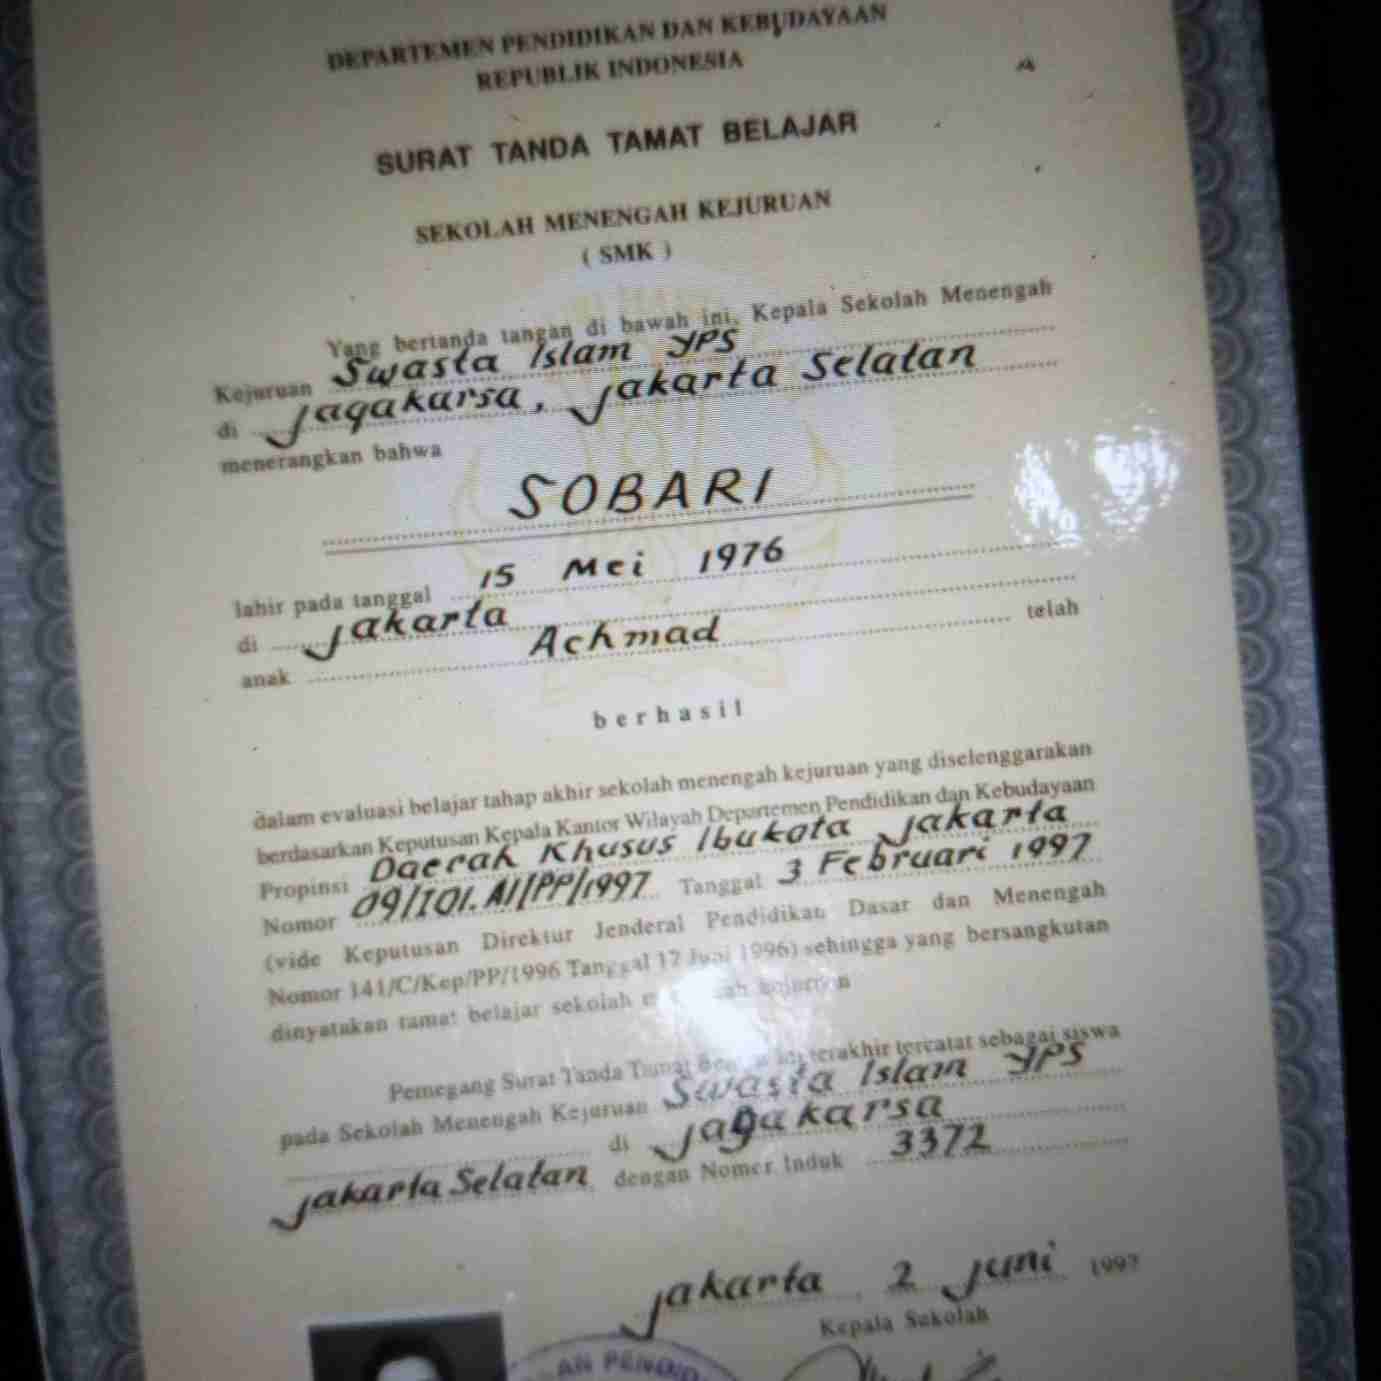 DEPARTEMEN PENDIDIKAN DAN KEBUDAYAAN
REPUBLIK INDONESIA
SURAT TANDA TAMAT BELAJAR
SEKOLAH MENENGAH KEJURUAN
( SMK )
Yang bertanda tangan di bawah ini, Kepala Sekolah Menengah
Kejuruan Swasta Islam YPS
di Jagakarsa, Jakarta Selatan
menerangkan bahwa
SOBARI
lahir pada tanggal 15 Mei 1976
di Jakarta
anak Achmad telah
berhasil
dalam evaluasi belajar tahap akhir sekolah menengah kejuruan yang diselenggarakan
berdasarkan Keputusan Kepala Kantor Wilayah Departemen Pendidikan dan Kebudayaan
Propinsi Daerah Khusus Ibukota Jakarta
Nomor 09/I01.A1/PP/1997 Tanggal 3 Februari 1997
(vide Keputusan Direktur Jenderal Pendidikan Dasar dan Menengah
Nomor 141/C/Kep/PP/1996 Tanggal 17 Juni 1996) sehingga yang bersangkutan
dinyatakan tamat belajar sekolah kejuruan
Pemegang Surat Tanda Tamat terakhir tercatat sebagai siswa
pada Sekolah Menengah Kejuruan Swasta Islam YPS
di Jagakarsa
Jakarta Selatan dengan Nomer Induk 3372
Jakarta 2 Juni 1997
Kepala Sekolah